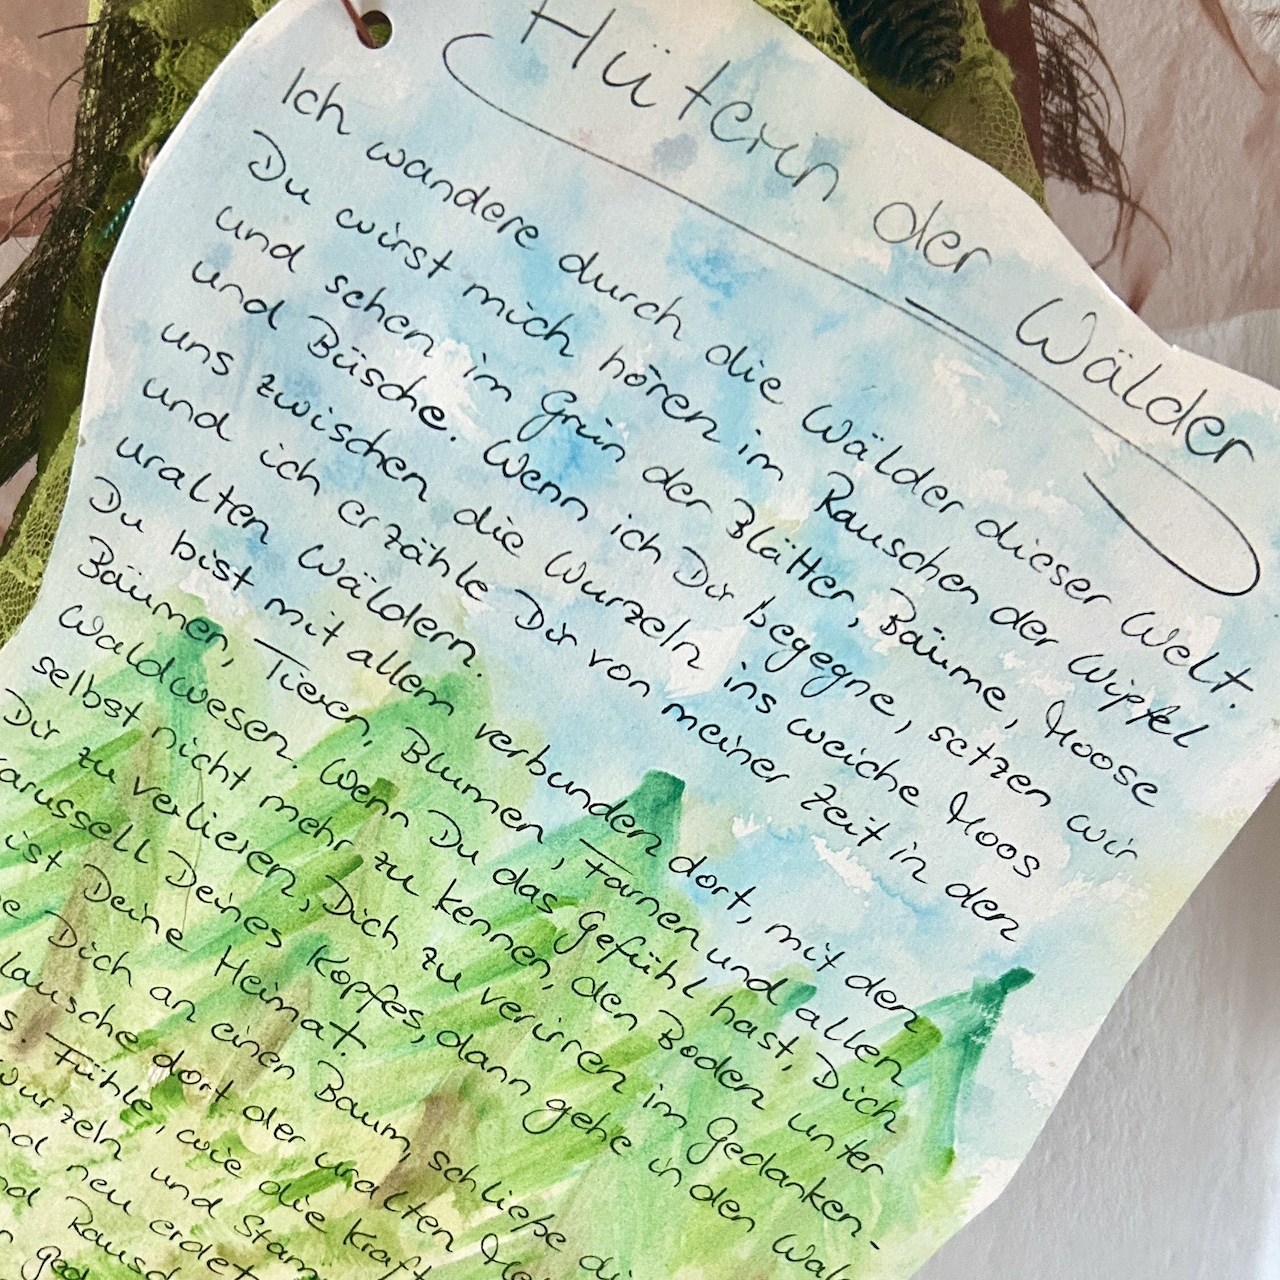 Hüterin der Wälder
Ich wandere durch die Wälder dieser Welt.
Du wirst mich hören im Rauschen der Wipfel
und sehen im Grün der Blätter, Bäume, Moose
und Büsche. Wenn ich Dir begegne, setzen wir
uns zwischen die Wurzeln ins weiche Moos
und ich erzähle Dir von meiner Zeit in den
uralten Wäldern.
Du bist mit allem verbunden dort, mit den
Bäumen, Tieren, Blumen, Farnen und allen
Waldwesen. Wenn Du das Gefühl hast, Dich
selbst nicht mehr zu kennen, den Boden unter
Dir zu verlieren, Dich zu verirren im Gedanken-
karussell Deines Kopfes, dann gehe in den Wal
ist Deine Heimat.
Dich an einen Baum, schließe di
lausche dort der uralten
s. Fühle, wie die Kraft
wurzeln und Stam
nd neu erdet
nd Rausc